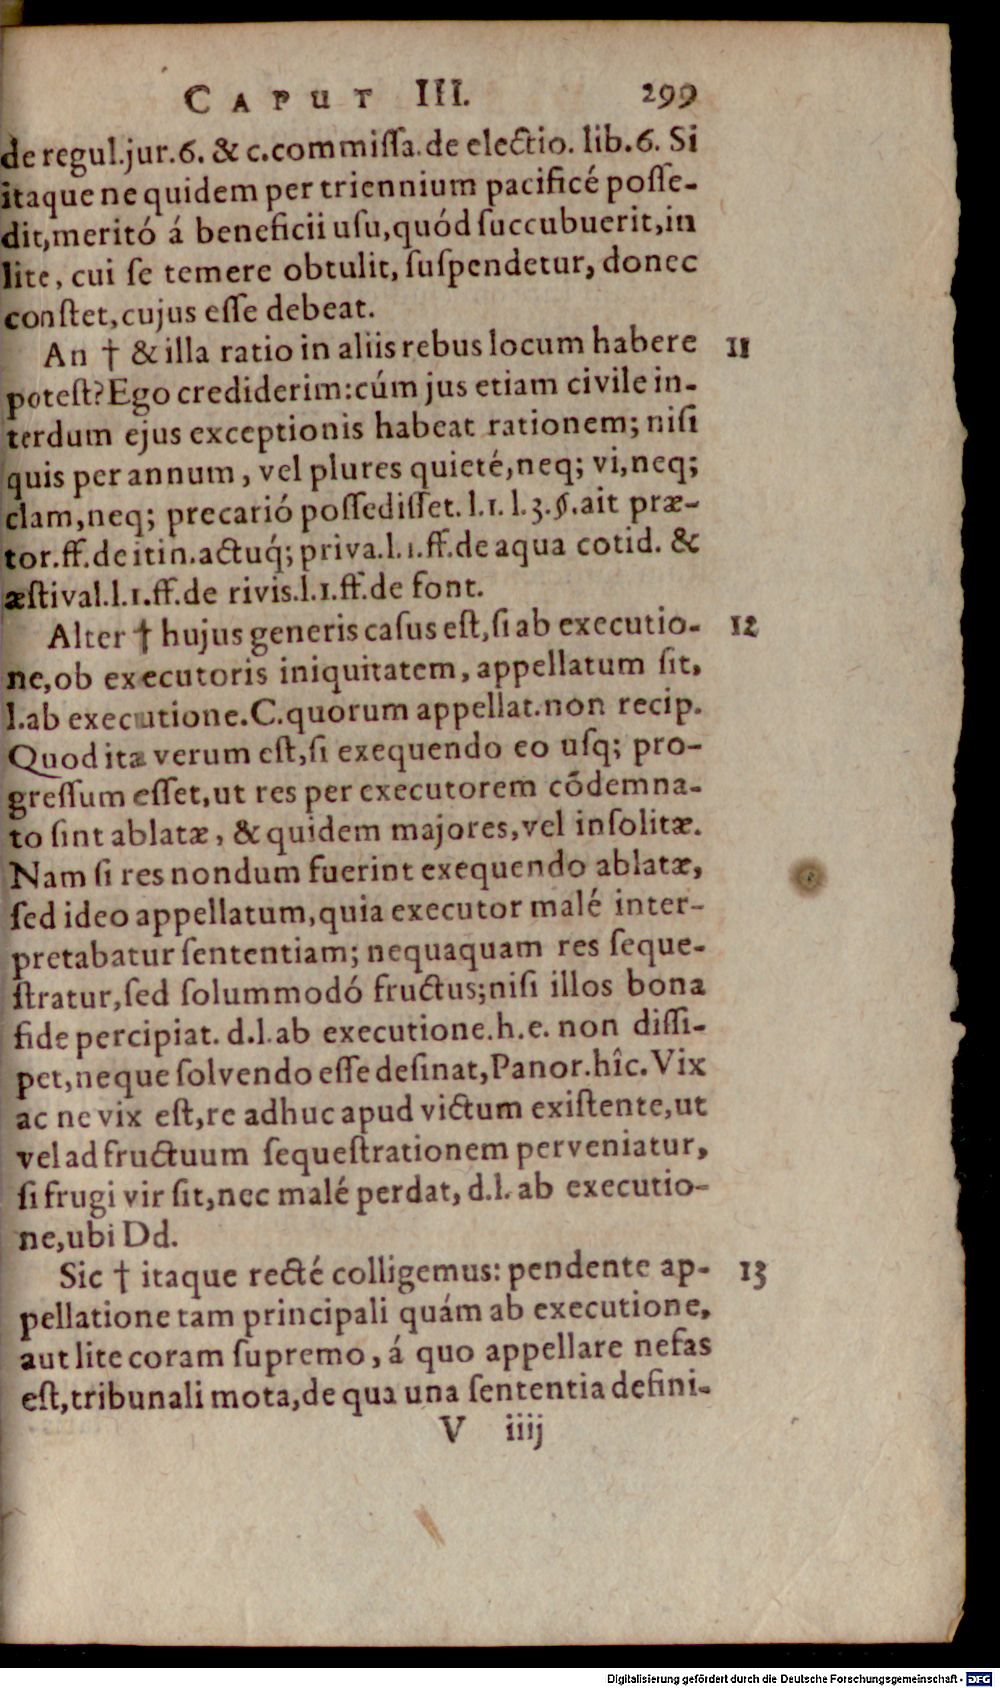 CAPUT III. 299
de regul.jur.6. & c.commiſſa.de electio. lib.6. Si
itaque ne quidem per triennium pacificé poſſe-
dit,meritó á beneficii uſu,quód ſuccubuerit,in
lite, cui ſe temere obtulit, ſuſpendetur, donec
conſtet,cujus eſſe debeat.
An † & illa ratio in aliis rebus locum habere 11
poteſt? Ego crediderim:cúm jus etiam civile in-
terdum ejus exceptionis habeat rationem; niſi
quis per annum, vel plures quieté,neq; vi,neq;
clam,neq; precarió poſſediſſet. l.1. l.3.§.ait præ-
tor.ff.de itin.actuq́; priva.l.1.ff.de aqua cotid. &
æſtival.l.1.ff.de rivis.l.1.ff.de font.
Alter † hujus generis caſus eſt,ſi ab executio- 12
ne,ob executoris iniquitatem, appellatum ſit,
l.ab executione.C.quorum appellat.non recip.
Quod ita verum eſt,ſi exequendo eo uſq; pro-
greſſum eſſet,ut res per executorem cōdemna-
to ſint ablatæ, & quidem majores,vel inſolitæ.
Nam ſi res nondum fuerint exequendo ablatæ,
ſed ideo appellatum,quia executor malé inter-
pretabatur ſententiam; nequaquam res ſeque-
ſtratur,ſed ſolummodó fructus;niſi illos bona
fide percipiat. d.l.ab executione.h.e. non diſſi-
pet,neque ſolvendo eſſe deſinat,Panor.hîc. Vix
ac ne vix eſt,re adhuc apud victum exiſtente,ut
vel ad fructuum ſequeſtrationem perveniatur,
ſi frugi vir ſit,nec malé perdat, d.l. ab executio-
ne,ubi Dd.
Sic † itaque recté colligemus: pendente ap- 13
pellatione tam principali quám ab executione,
aut lite coram ſupremo, á quo appellare nefas
eſt,tribunali mota,de qua una ſententia defini-
V iiij
Digitalisierung gefördert durch die Deutsche Forschungsgemeinschaft - DFG